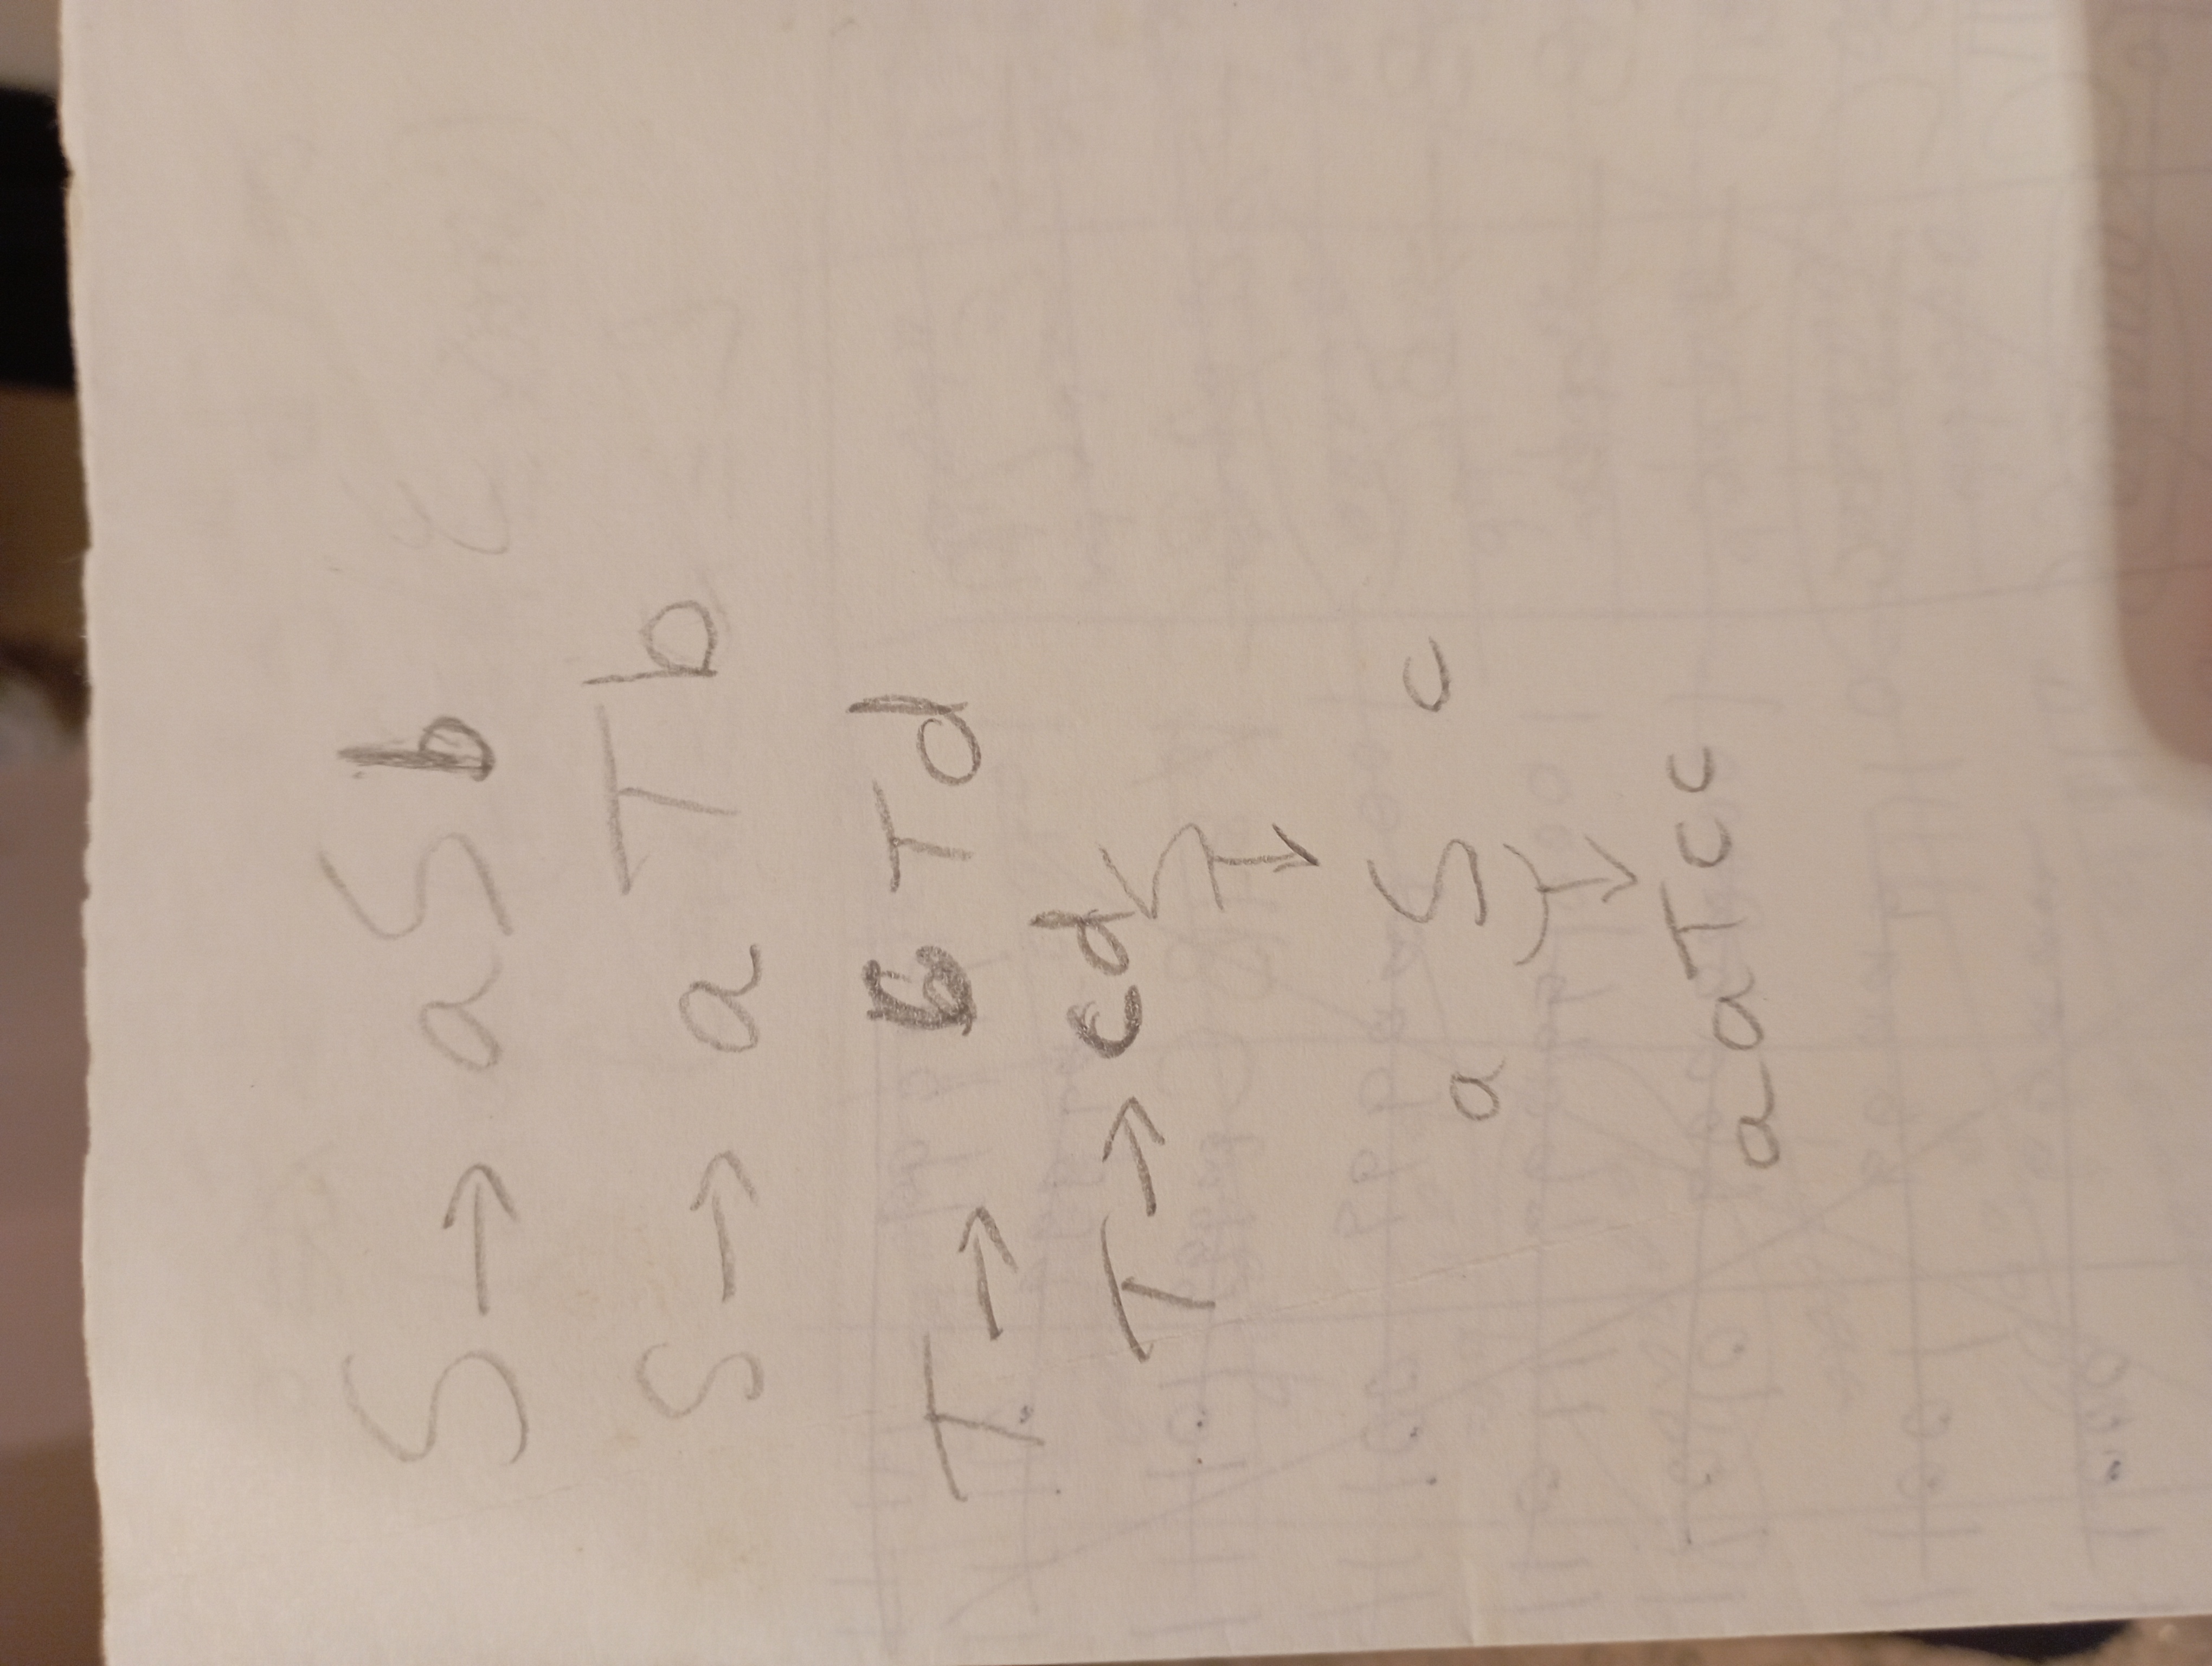 S → aSb
S → aTb
T → Td
T → cd
S
↓
a S c
↓
aaTcc